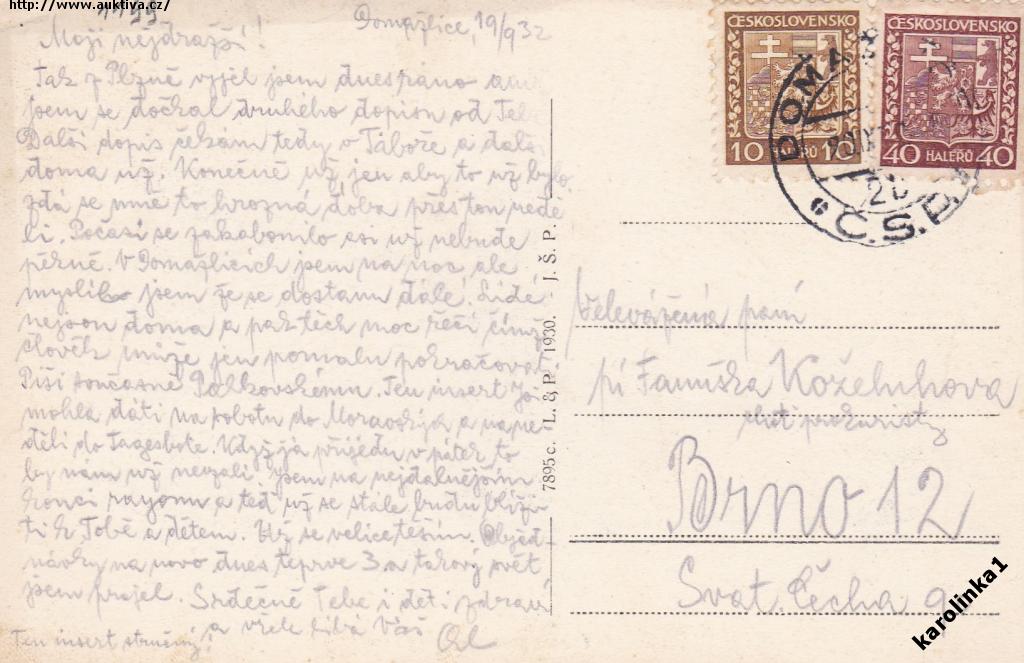 http://www.auktiva.cz/
Domažlice, 19/9 32
Moji nejdražší!
Tak z Plzně vyjel jsem dnes ráno a
jsem se dočkal druhého dopisu od Teb
Další dopis čekám tedy v Táboře a další
doma už. Konečně už jen aby to už bylo
zdá se mně to hrozná doba přes ton neděli
li. Počasí se zakabonilo asi už nebude
pěkně. V Domažlicích jsem na noc ale
myslil jsem že se dostanu dále. Lidé
nejsou doma a pak těch moc řečí čímž
člověk může jen pomalu pokračovat.
Píši současně Palkovskému. Ten insert
mohla dáti na sobotu do Moravské a na ne-
děli do Tagesbote. Když já přijedu v pátek to
by nám už nevzali. Jsem na nejdalnějším
konci rayonu a teď už se stále budu blíži-
ti k Tobě a dětem. Už se velice těším. Objed-
návky na novo dnes teprve 3 a takový svět
jsem projel. Srdečně Tebe i děti zdraví
a vřele líbá Váš
Ten insert stručný!
ČESKOSLOVENSKO
10 HALÉŘŮ 10
ČESKOSLOVENSKO
40 HALÉŘŮ 40
DOMAŽ
Č.S.P.
7895 c. L. & P. 1930. J. Š. P.
Velevážená paní
pí Fanuška Koželuhova
chot prokuristy
Brno 12
Svat. Čecha 9
karolinka1